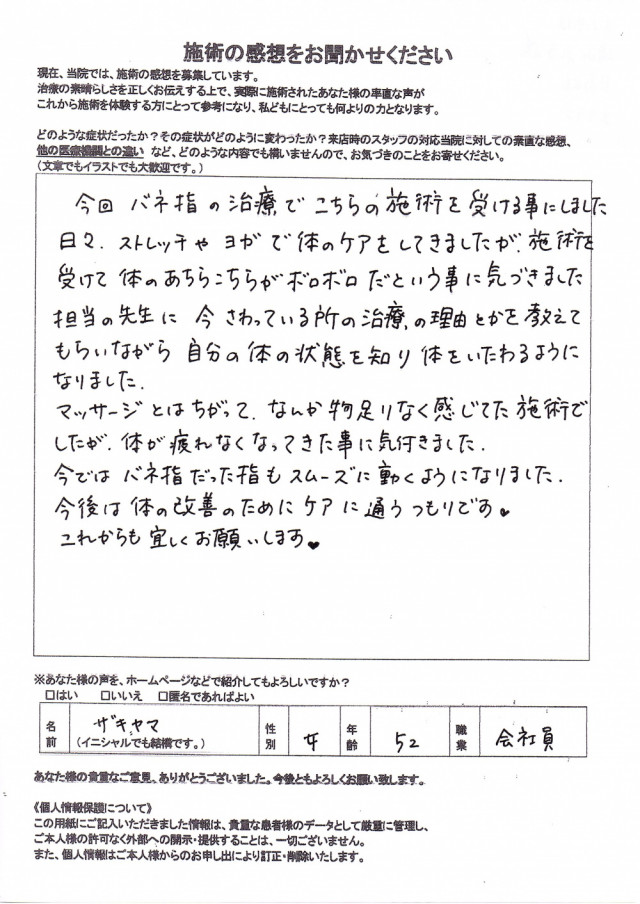 施術の感想をお聞かせください
現在、当院では、施術の感想を募集しています。
治療の素晴らしさを正しくお伝えする上で、実際に施術されたあなた様の率直な声が
これから施術を体験する方にとって参考になり、私どもにとっても何よりの力となります。
どのような症状だったか？その症状がどのように変わったか？来店時のスタッフの対応当院に対しての素直な感想、
他の医療機関との違い など、どのような内容でも構いませんので、お気づきのことをお寄せください。
(文章でもイラストでも大歓迎です。)
今回 バネ指の治療で こちらの施術を受ける事にしました
日々、ストレッチや ヨガで体のケアをしてきましたが、施術を
受けて 体のあちらこちらがボロボロ だという事に気づきました
担当の先生に 今 さわっている所の治療、の理由とかを教えて
もらいながら 自分の体の状態を知り 体をいたわるように
なりました.
マッサージとはちがって、なんか物足りなく感じてた施術で
したが、体が疲れなくなってきた事に気付きました.
今では バネ指だった指も スムーズに動くようになりました.
今後は 体の改善のために ケアに通うつもりです♥
これからも 宜しくお願いします♥
※あなた様の声を、ホームページなどで紹介してもよろしいですか？
□はい □いいえ □匿名であればよい
名前 ザキヤマ (イニシャルでも結構です。) 性別 女 年齢 52 職業 会社員
あなた様の貴重なご意見、ありがとうございました。今後ともよろしくお願い致します。
《個人情報保護について》
この用紙にご記入いただきました情報は、貴重な患者様のデータとして厳重に管理し、
ご本人様の許可なく外部への開示・提供することは、一切ございません。
また、個人情報はご本人様からのお申し出により訂正・削除いたします。